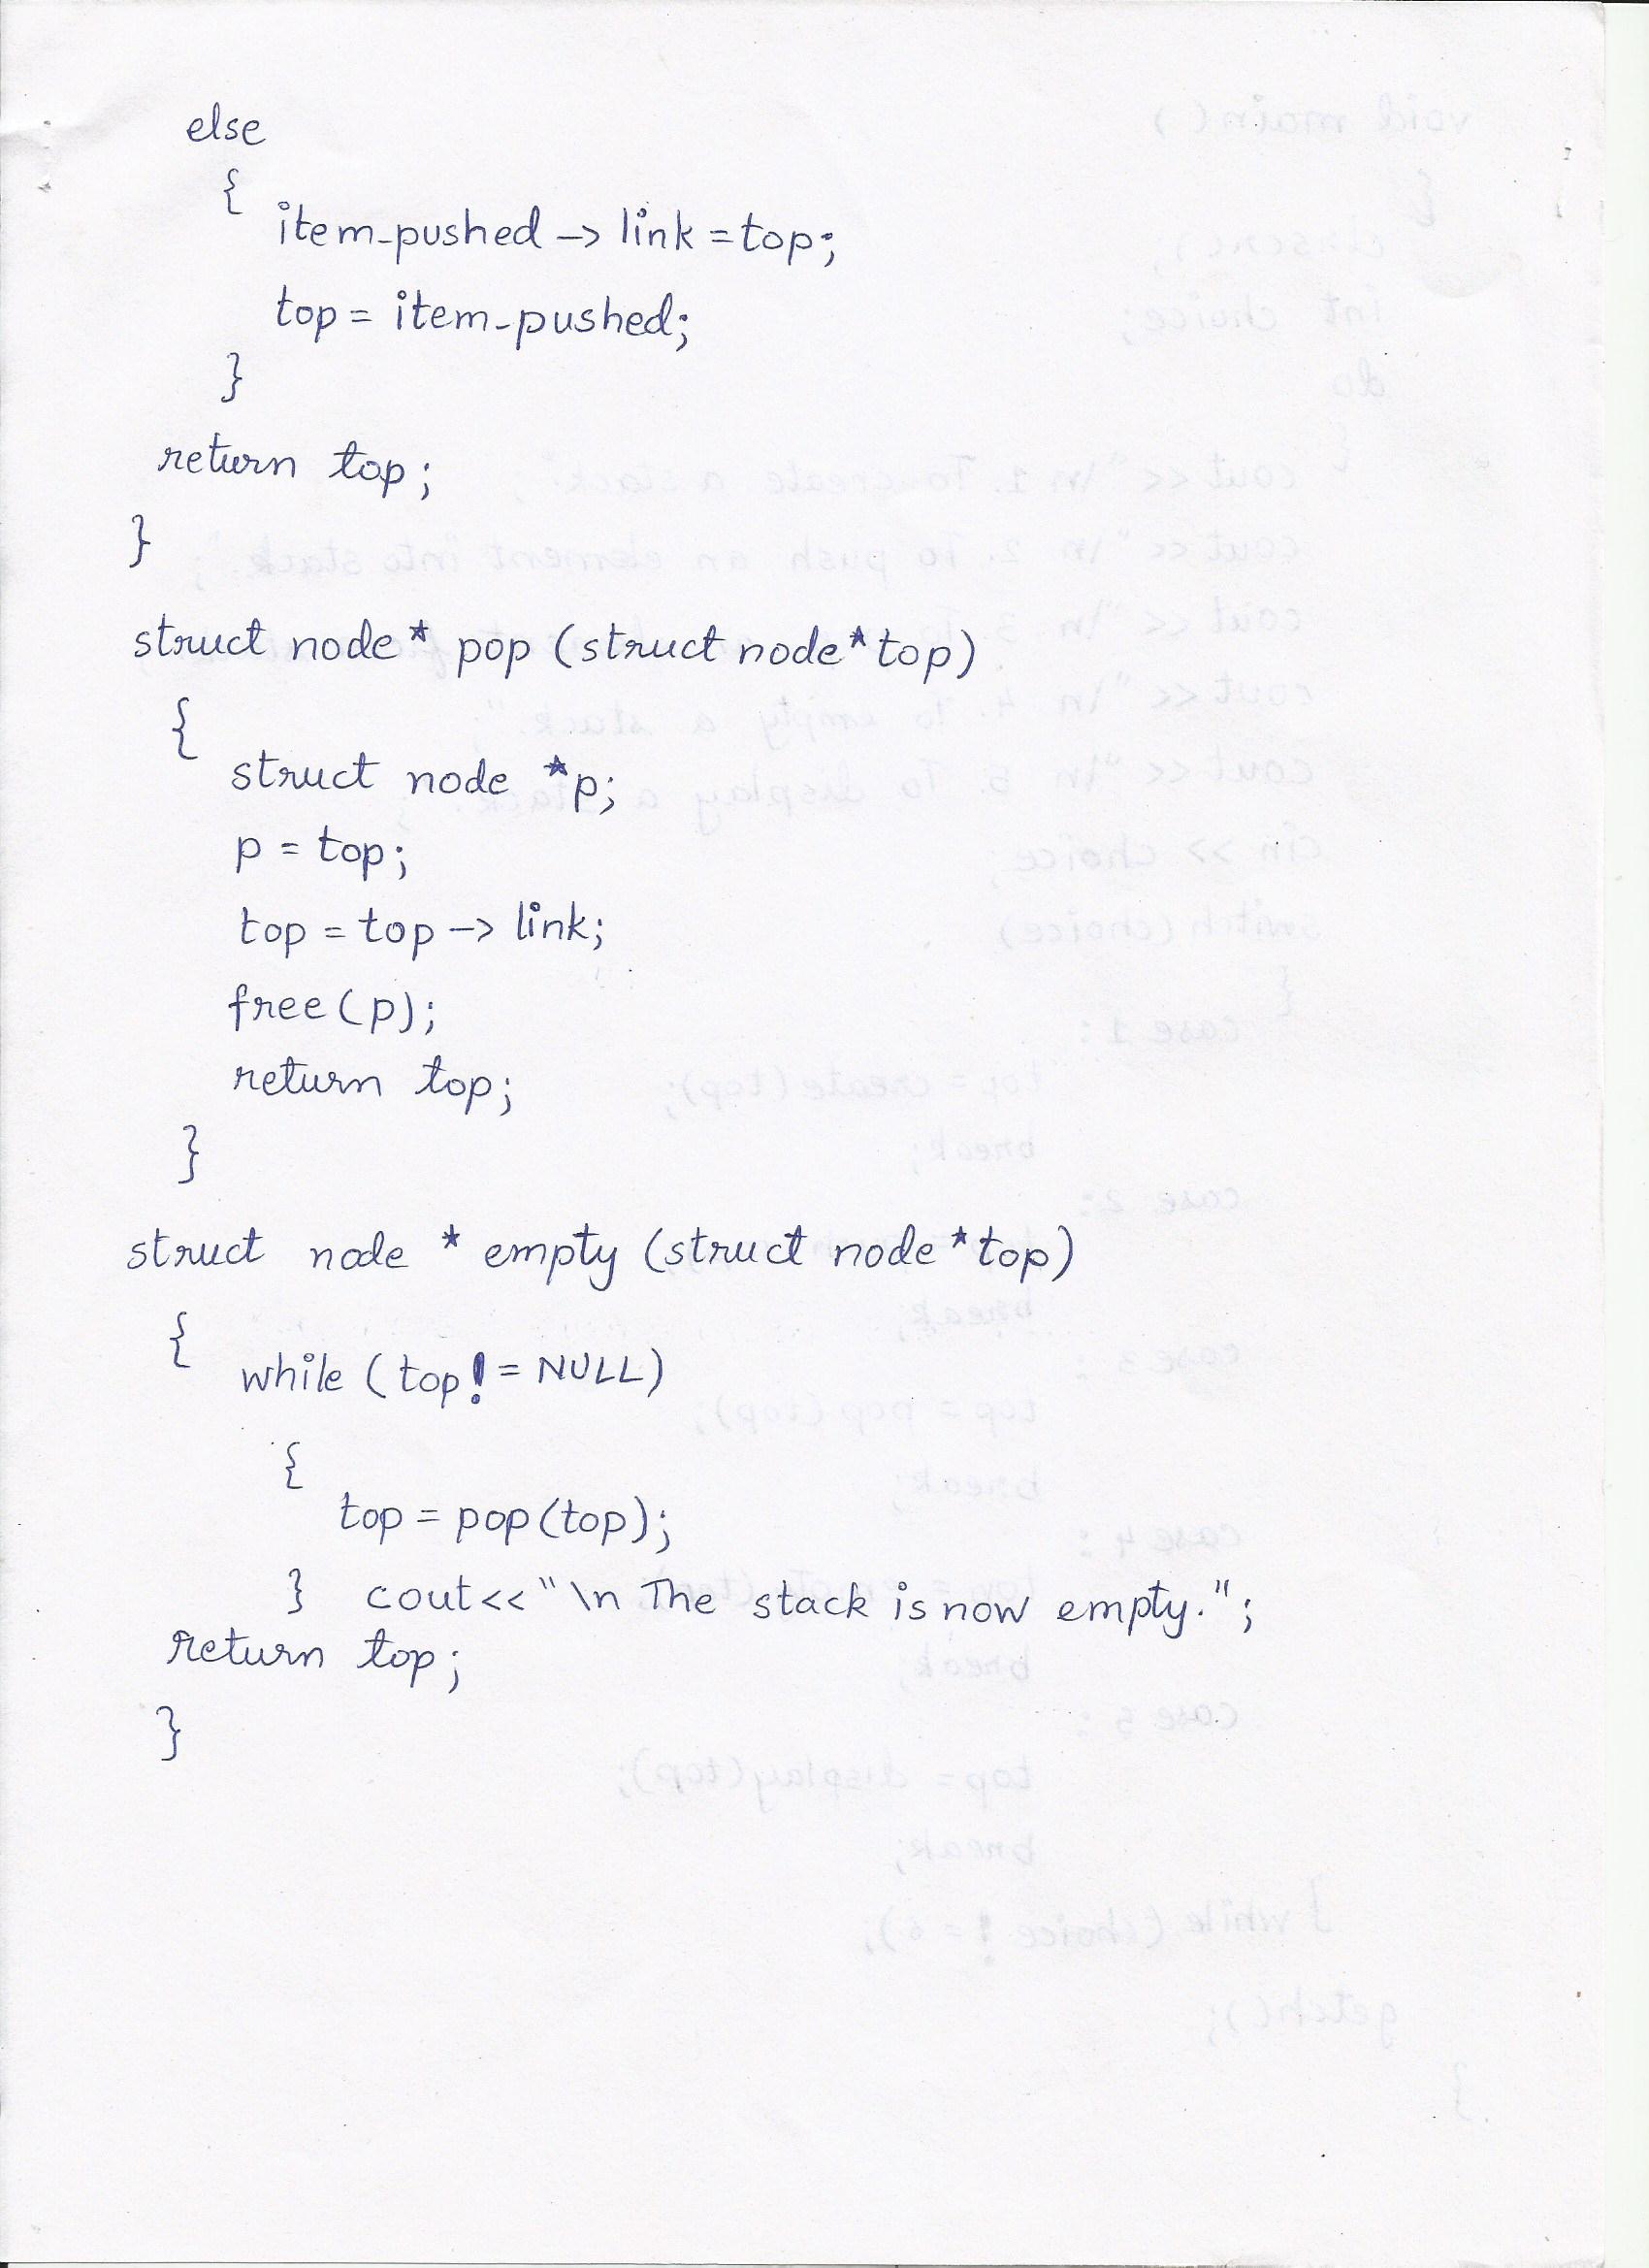 else
{
item_pushed -> link = top;
top = item_pushed;
}
return top;
}
struct node* pop (struct node*top)
{
struct node *p;
p = top;
top = top -> link;
free(p);
return top;
}
struct node * empty (struct node*top)
{
while (top != NULL)
{
top = pop(top);
} cout<<"\n The stack is now empty.";
return top;
}